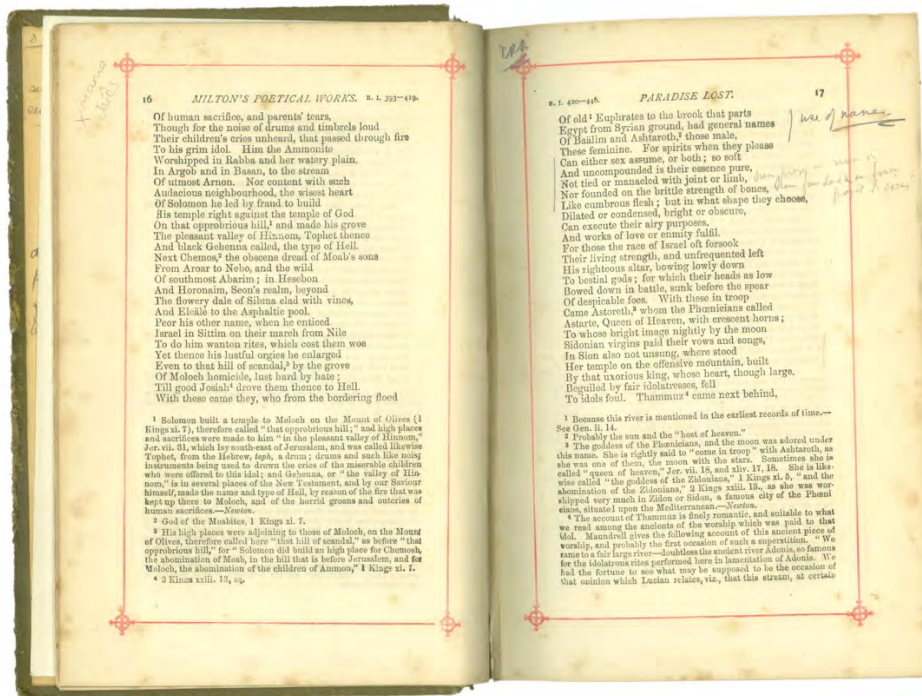 16 MILTON'S POETICAL WORKS. B. I. 393—419.
Of human sacrifice, and parents' tears,
Though for the noise of drums and timbrels loud
Their children's cries unheard, that passed through fire
To his grim idol. Him the Ammonite
Worshipped in Rabba and her watery plain,
In Argob and in Basan, to the stream
Of utmost Arnon. Nor content with such
Audacious neighbourhood, the wisest heart
Of Solomon he led by fraud to build
His temple right against the temple of God
On that opprobrious hill,¹ and made his grove
The pleasant valley of Hinnom, Tophet thence
And black Gehenna called, the type of Hell.
Next Chemos,² the obscene dread of Moab's sons
From Aroar to Nebo, and the wild
Of southmost Abarim; in Hesebon
And Horonaim, Seon's realm, beyond
The flowery dale of Sibma clad with vines,
And Elëalë to the Asphaltic pool.
Peor his other name, when he enticed
Israel in Sittim on their march from Nile
To do him wanton rites, which cost them woe
Yet thence his lustful orgies he enlarged
Even to that hill of scandal,³ by the grove
Of Moloch homicide, lust hard by hate;
Till good Josiah⁴ drove them thence to Hell.
With these came they, who from the bordering flood
¹ Solomon built a temple to Moloch on the Mount of Olives (1
Kings xi. 7), therefore called "that opprobrious hill;" and high places
and sacrifices were made to him "in the pleasant valley of Hinnom,"
Jer. vii. 31, which lay south-east of Jerusalem, and was called likewise
Tophet, from the Hebrew, toph, a drum; drums and such like noisy
instruments being used to drown the cries of the miserable children
who were offered to this idol; and Gehenna, or "the valley of Hin-
nom," is in several places of the New Testament, and by our Saviour
himself, made the name and type of Hell, by reason of the fire that was
kept up there to Moloch, and of the horrid groans and outcries of
human sacrifices.—Newton.
² God of the Moabites, 1 Kings xi. 7.
³ His high places were adjoining to those of Moloch, on the Mount
of Olives, therefore called here "that hill of scandal," as before "that
opprobrious hill," for "Solomon did build an high place for Chemosh,
the abomination of Moab, in the hill that is before Jerusalem, and for
Moloch, the abomination of the children of Ammon," 1 Kings xi. 7.
⁴ 2 Kings xxiii. 13, sq.
B. I. 420—446. PARADISE LOST. 17
Of old¹ Euphrates to the brook that parts
Egypt from Syrian ground, had general names
use of names
Of Baalim and Ashtaroth,² those male,
These feminine. For spirits when they please
Can either sex assume, or both; so soft
And uncompounded is their essence pure,
Not tied or manacled with joint or limb,
Nor founded on the brittle strength of bones,
Like cumbrous flesh; but in what shape they choose,
Dilated or condensed, bright or obscure,
Can execute their airy purposes,
And works of love or enmity fulfil.
For those the race of Israel oft forsook
Their living strength, and unfrequented left
His righteous altar, bowing lowly down
To bestial gods; for which their heads as low
Bowed down in battle, sunk before the spear
Of despicable foes. With these in troop
Came Astoreth,³ whom the Phœnicians called
Astarte, Queen of Heaven, with crescent horns;
To whose bright image nightly by the moon
Sidonian virgins paid their vows and songs,
In Sion also not unsung, where stood
Her temple on the offensive mountain, built
By that uxorious king, whose heart, though large,
Beguiled by fair idolatresses, fell
To idols foul. Thammuz⁴ came next behind,
¹ Because this river is mentioned in the earliest records of time.—
See Gen. ii. 14.
² Probably the sun and the "host of heaven."
³ The goddess of the Phœnicians, and the moon was adored under
this name. She is rightly said to "come in troop" with Ashtaroth, as
she was one of them, the moon with the stars. Sometimes she is
called "queen of heaven," Jer. vii. 18, and xliv. 17, 18. She is like-
wise called "the goddess of the Zidonians," 1 Kings xi. 5, "and the
abomination of the Zidonians," 2 Kings xxiii. 13., as she was wor-
shipped very much in Zidon or Sidon, a famous city of the Phœni
cians, situated upon the Mediterranean.—Newton.
⁴ The account of Thammuz is finely romantic, and suitable to what
we read among the ancients of the worship which was paid to that
idol. Maundrell gives the following account of this ancient piece of
worship, and probably the first occasion of such a superstition. "We
came to a fair large river—doubtless the ancient river Adonis, so famous
for the idolatrous rites performed here in lamentation of Adonis. We
had the fortune to see what may be supposed to be the occasion of
that opinion which Lucian relates, viz., that this stream, at certain